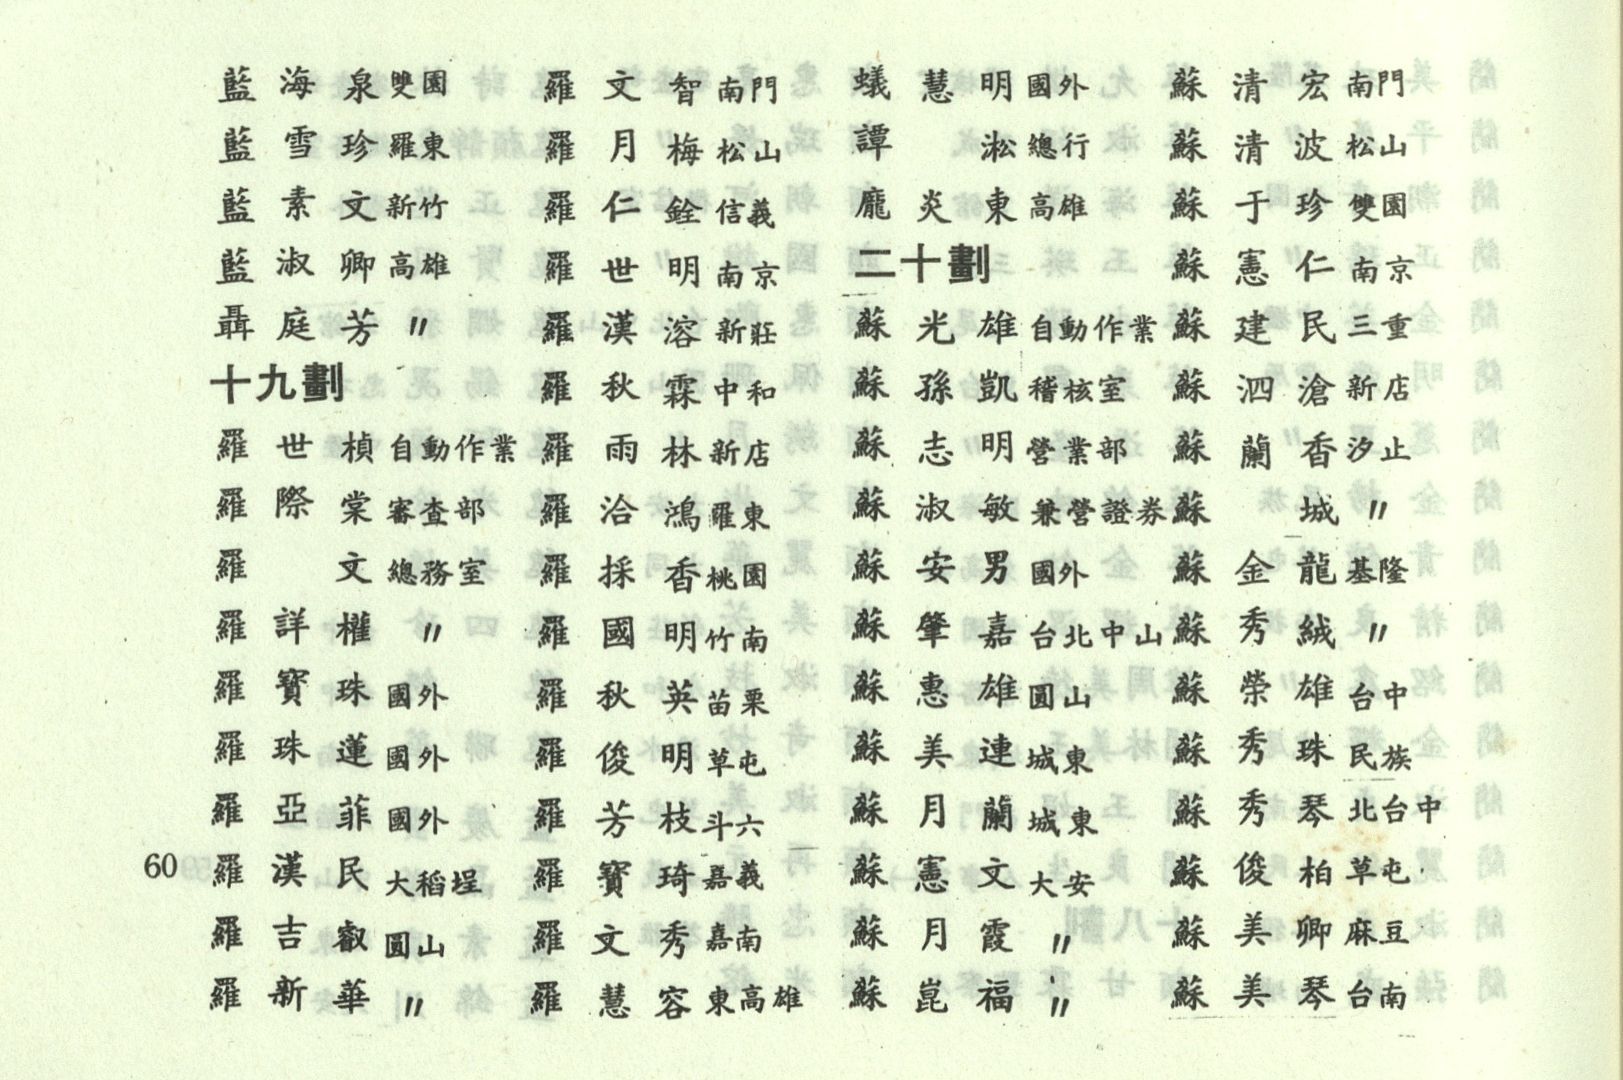 藍海泉雙園
藍雪珍羅東
藍素文新竹
藍淑卿高雄
聶庭芳〃
十九劃
羅世楨自動作業
羅際棠審查部
羅文總務室
羅詳權〃
羅寶珠國外
羅珠蓮國外
羅亞菲國外
羅漢民大稻埕
羅吉叡圓山
羅新華〃
羅文智南門
羅月梅松山
羅仁銓信義
羅世明南京
羅漢溶新莊
羅秋霖中和
羅雨林新店
羅洽鴻羅東
羅採香桃園
羅國明竹南
羅秋英苗栗
羅俊明草屯
羅芳枝斗六
羅寶琦嘉義
羅文秀嘉南
羅慧容東高雄
蟻慧明國外
譚淞總行
龐炎東高雄
二十劃
蘇光雄自動作業
蘇孫凱稽核室
蘇志明營業部
蘇淑敏兼營證券
蘇安男國外
蘇肇嘉台北中山
蘇惠雄圓山
蘇美連城東
蘇月蘭城東
蘇憲文大安
蘇月霞〃
蘇崑福〃
蘇清宏南門
蘇清波松山
蘇于珍雙園
蘇憲仁南京
蘇建民三重
蘇泗滄新店
蘇蘭香汐止
蘇城〃
蘇金龍基隆
蘇秀絨〃
蘇榮雄台中
蘇秀珠民族
蘇秀琴北台中
蘇俊柏草屯
蘇美卿麻豆
蘇美琴台南
60